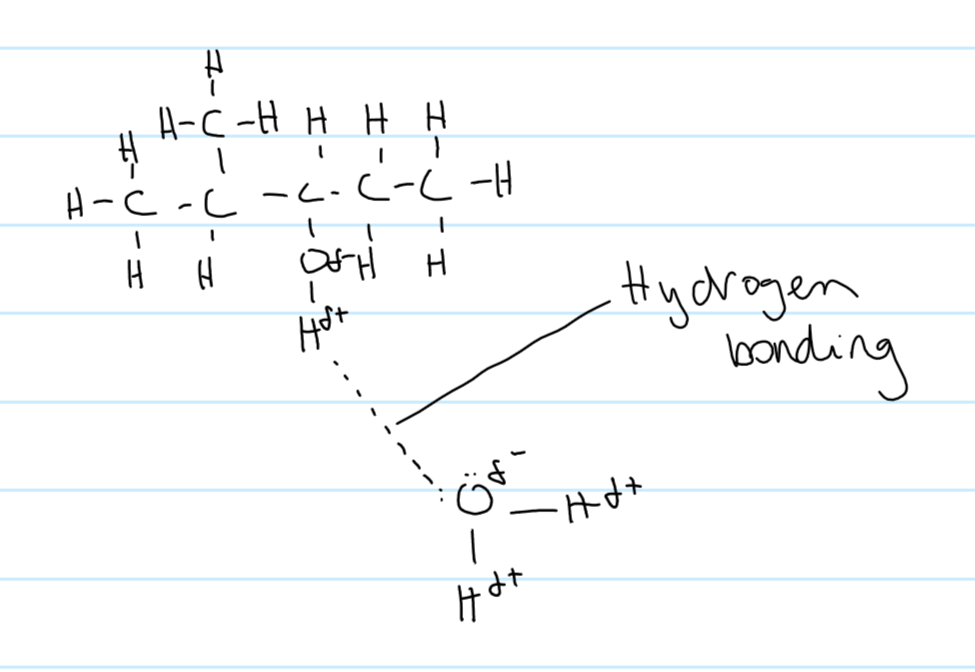 H
H-C-H H H H
H
H-C-C-C-C-C-H
H H Oδ- H H
Hδ+
Hydrogen
bonding
:Öδ- -Hδ+
Hδ+